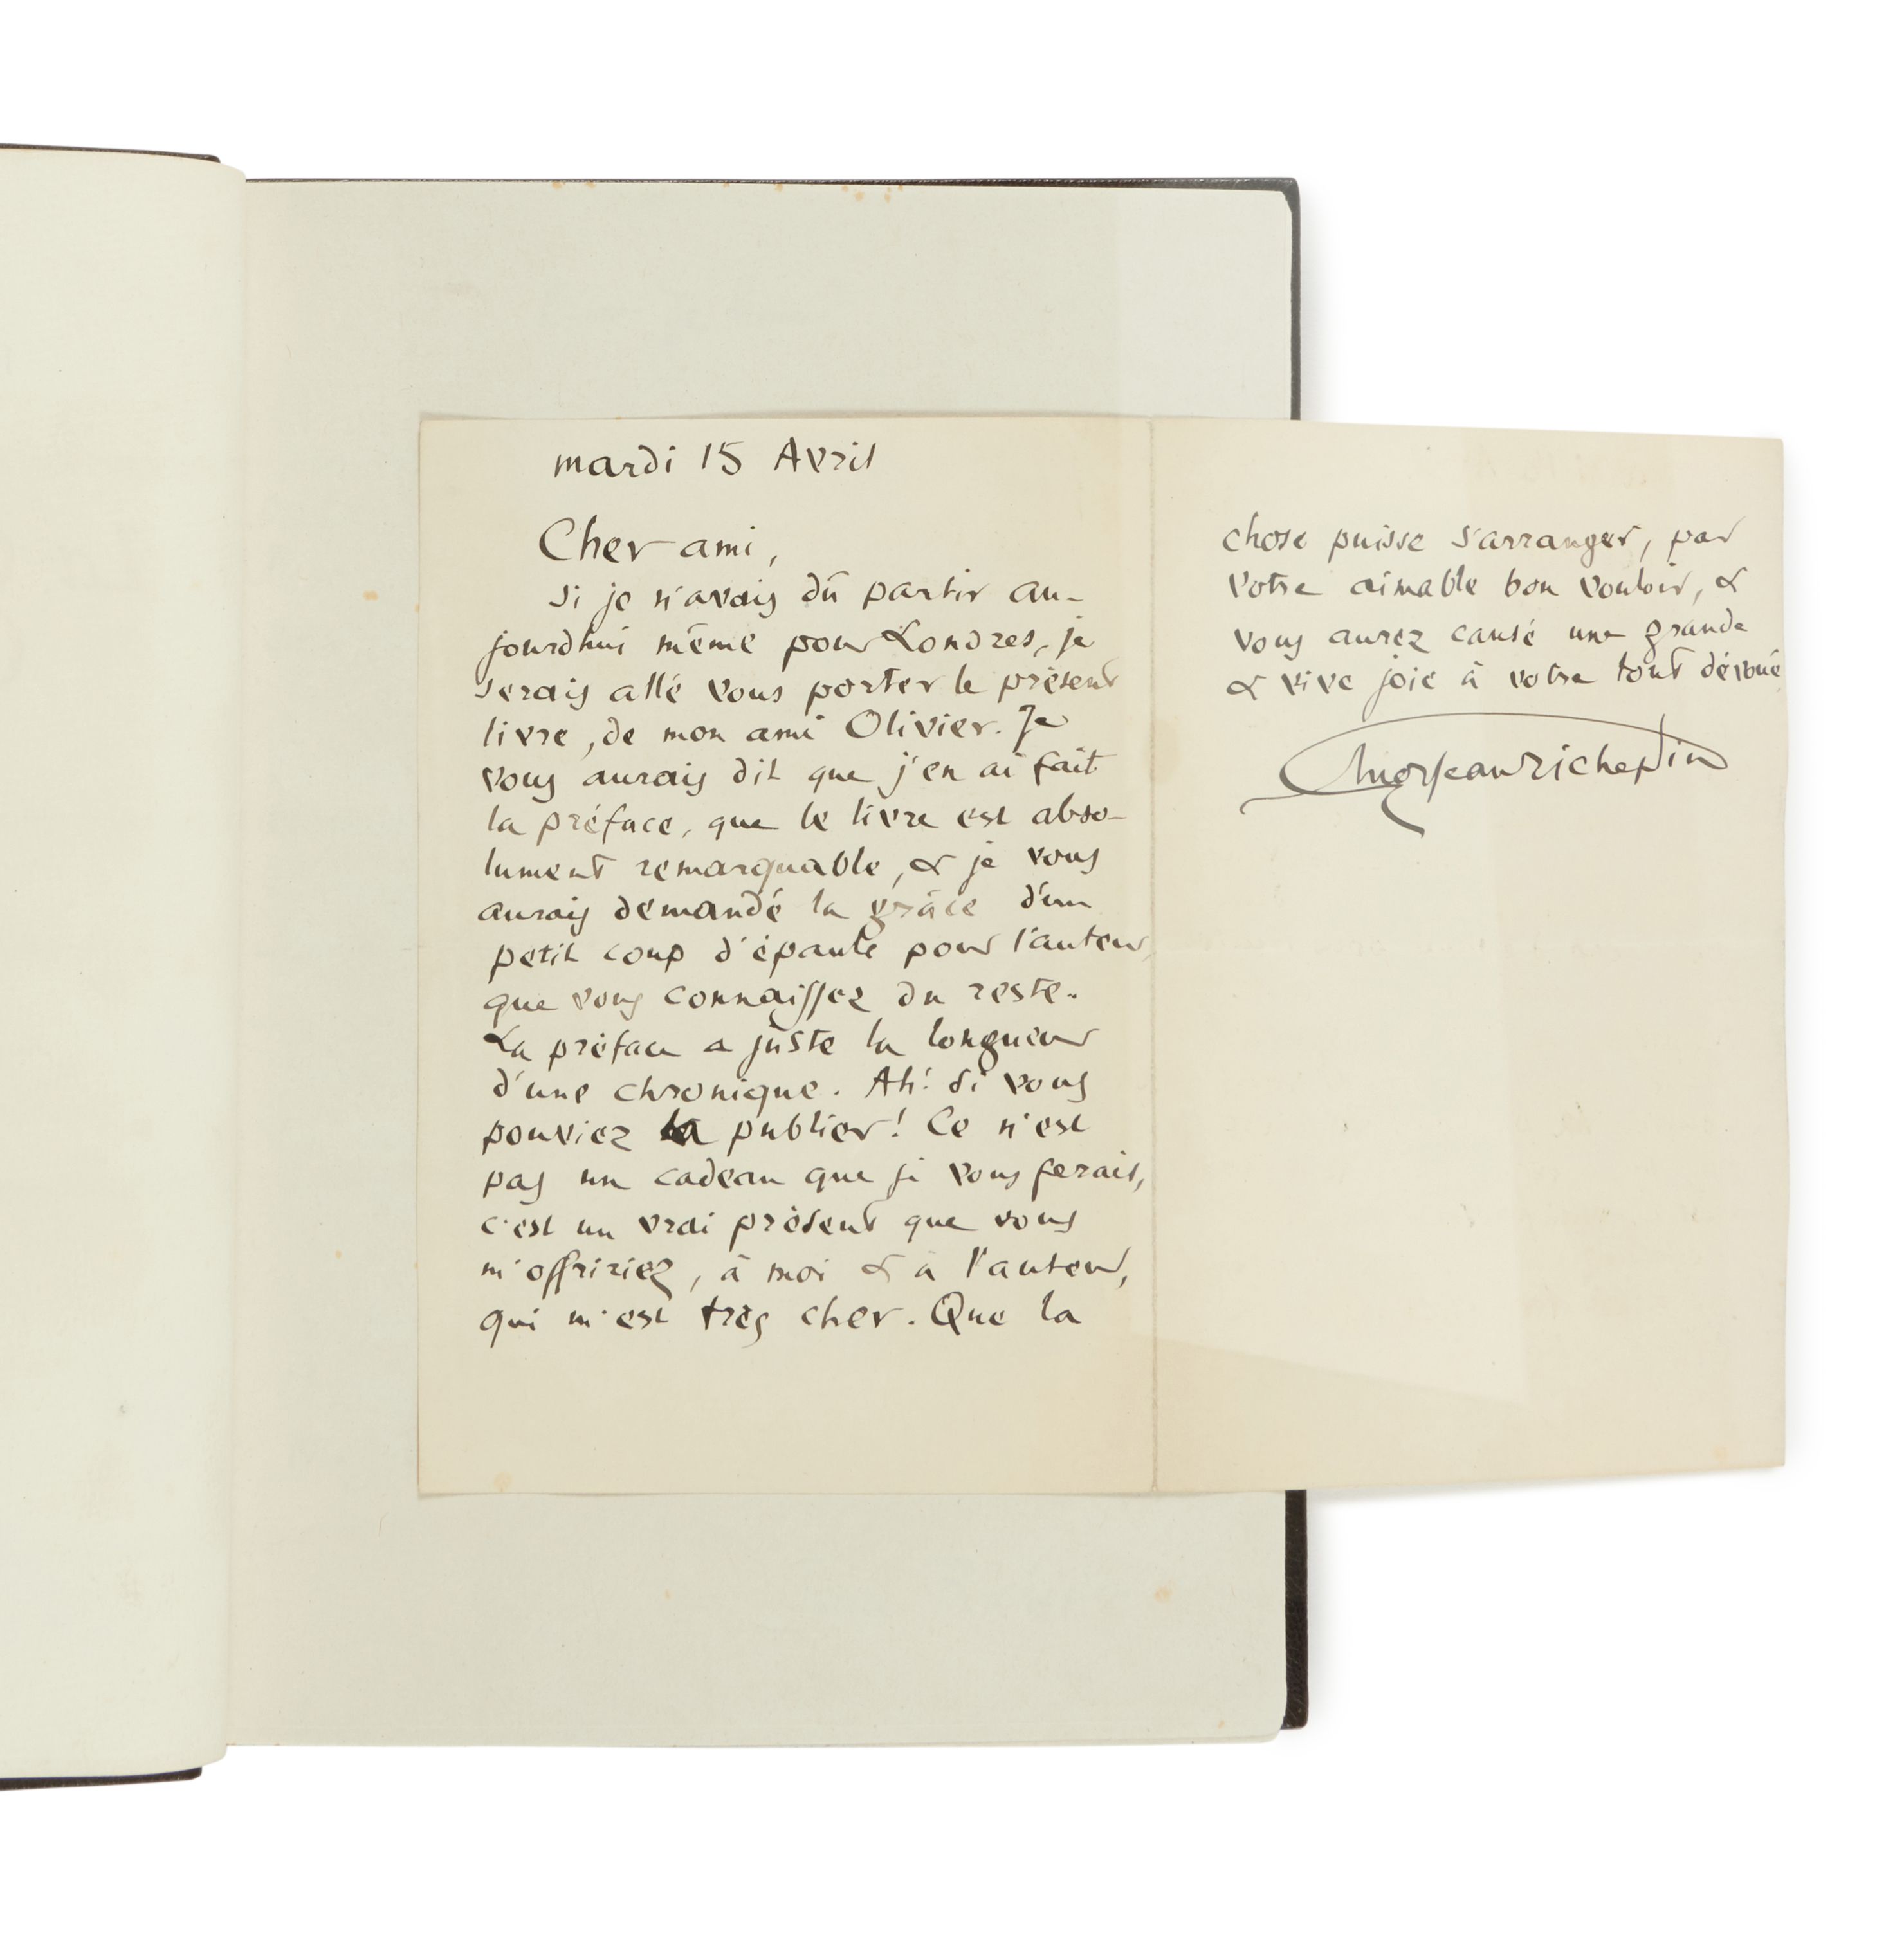 mardi 15 Avril
Cher ami,
si je n'avais dû partir au-
jourdhui même pour Londres, je
serais allé vous porter le présent
livre, de mon ami Olivier. Je
vous aurais dit que j'en ai fait
la préface, que le livre est abso-
lument remarquable, & je vous
aurais demandé la grâce d'un
petit coup d'épaule pour l'auteur,
que vous connaissez du reste.
La préface a juste la longueur
d'une chronique. Ah! si vous
pouviez la publier! Ce n'est
pas un cadeau que je vous ferais,
c'est un vrai présent que vous
m'offririez, à moi & à l'auteur,
qui m'est très cher. Que la
chose puisse s'arranger, par
votre aimable bon vouloir, &
vous aurez causé une grande
& vive joie à votre tout dévoué
Jean Richepin